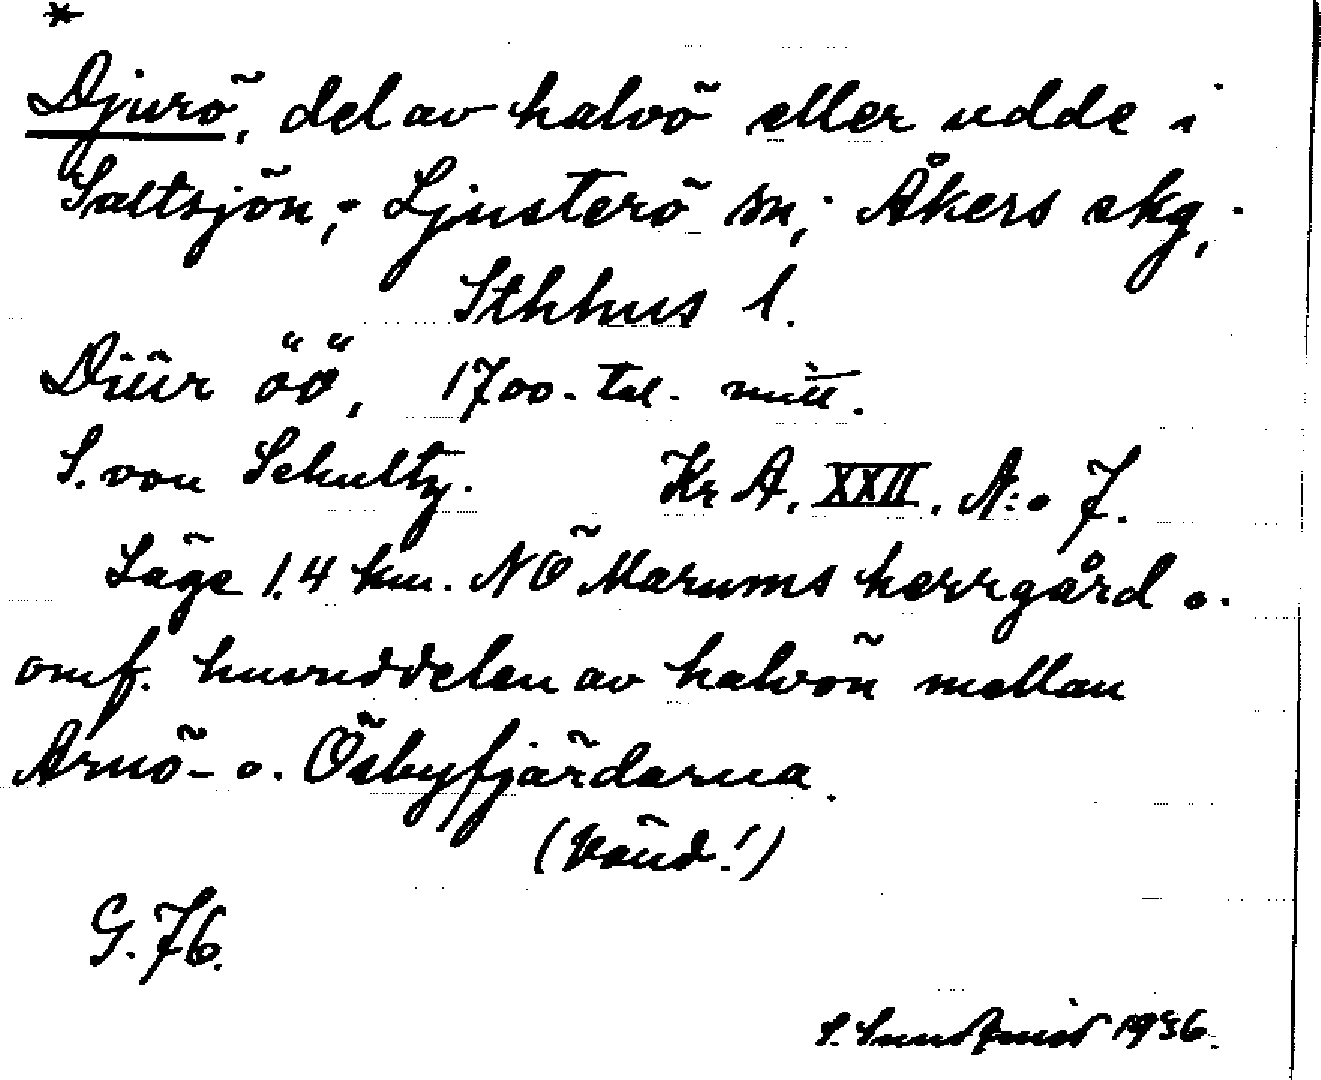 *
Djurö, del av halvö eller udde i
Saltsjön; Ljusterö sn; Åkers skg,
Sthhus l.
Diür öö, 1700-tal. mitt.
S. von Schultz. Kr A. XXII. N:o 7.
Läge 1.4 km. NÖ Marums herrgård o.
omf. huvuddelen av halvön mellan
Arnö- o. Ösbyfjärdarna.
(Vänd!)
G. 76.
S. Sundqvist 1936.